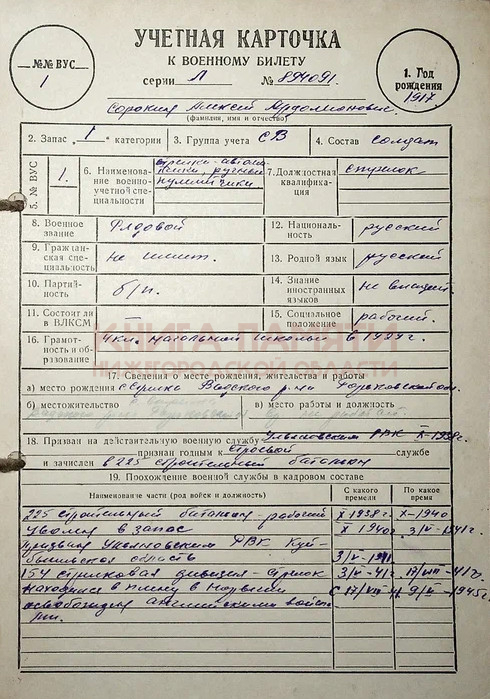 УЧЕТНАЯ КАРТОЧКА
К ВОЕННОМУ БИЛЕТУ
серии Л № 894091.
№№ ВУС
1
1. Год рождения
1917.
Сорокин Алексей
(фамилия, имя и отчество)
2. Запас I категории
3. Группа учета СВ
4. Состав солдат
5. № ВУС
1.
6. Наименование военно-учетной специальности
стрелки-автоматчики, ручные пулеметчики
7. Должностная квалификация
стрелок
8. Военное звание
Рядовой
12. Национальность
русский
9. Гражданская специальность
не имеет.
13. Родной язык
русский
10. Партийность
б/п.
14. Знание иностранных языков
не владеет
11. Состоит ли в ВЛКСМ
15. Социальное положение
рабочий.
16. Грамотность и образование
4 кл. начальной школы в 1927 г.
КНИГА ПАМЯТИ
НИЖЕГОРОДСКОЙ ОБЛАСТИ
17. Сведения о месте рождения, жительства и работы
а) место рождения Вадского р-на Горьковской обл.
б) местожительство
в) место работы и должность
18. Призван на действительную военную службу Ульяновским РВК X-1938 г.
признан годным к строевой службе
и зачислен в 225 строительный батальон
19. Прохождение военной службы в кадровом составе
Наименование части (род войск и должность)
С какого времени
По какое время
225 строительный батальон - рабочий X 1938 г. X-1940
Уволен в запас X 1940 г.
Призван Ульяновским РВК Куйбышевская область
154 стрелковая дивизия - стрелок
Находился в плену в Норвегии
освобожден английскими войсками